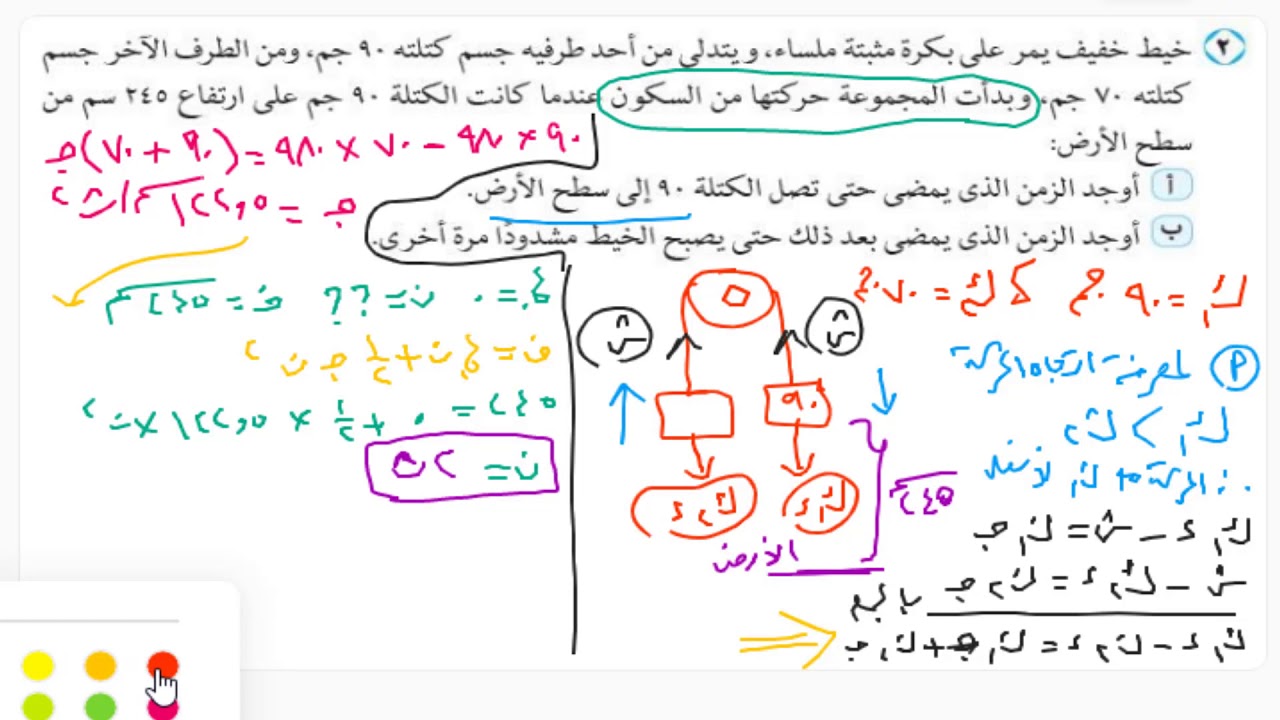 ٢ خيط خفيف يمر على بكرة مثبتة ملساء، ويتدلى من أحد طرفيه جسم كتلته ٩٠ جم، ومن الطرف الآخر جسم
كتلته ٧٠ جم، وبدأت المجموعة حركتها من السكون عندما كانت الكتلة ٩٠ جم على ارتفاع ٢٤٥ سم من
سطح الأرض:
أ أوجد الزمن الذى يمضى حتى تصل الكتلة ٩٠ إلى سطح الأرض.
ب أوجد الزمن الذى يمضى بعد ذلك حتى يصبح الخيط مشدودًا مرة أخرى.
ك١ = ٩٠ جم ك٢ = ٧٠ جم
أ لمعرفة اتجاه الحركة
ك١ > ك٢
∴ الحركة ك١ لأسفل
ك١ د - ش = ك١ جـ
ش - ك٢ د = ك٢ جـ بالجمع
ك١ د - ك٢ د = ك١ جـ + ك٢ جـ
ش
ش
٩٠
ك١ د
ك٢ د
٢٤٥ سم
الأرض
٩٠ × ٩٨٠ - ٧٠ × ٩٨٠ = (٩٠ + ٧٠) جـ
جـ = ١٢٢,٥ سم/ث٢
ع. = ٠ ن = ?? ف = ٢٤٥ سم
ف = ع. ن + ١/٢ جـ ن٢
٢٤٥ = ٠ + ١/٢ × ١٢٢,٥ × ن٢
ن = ٢ ث